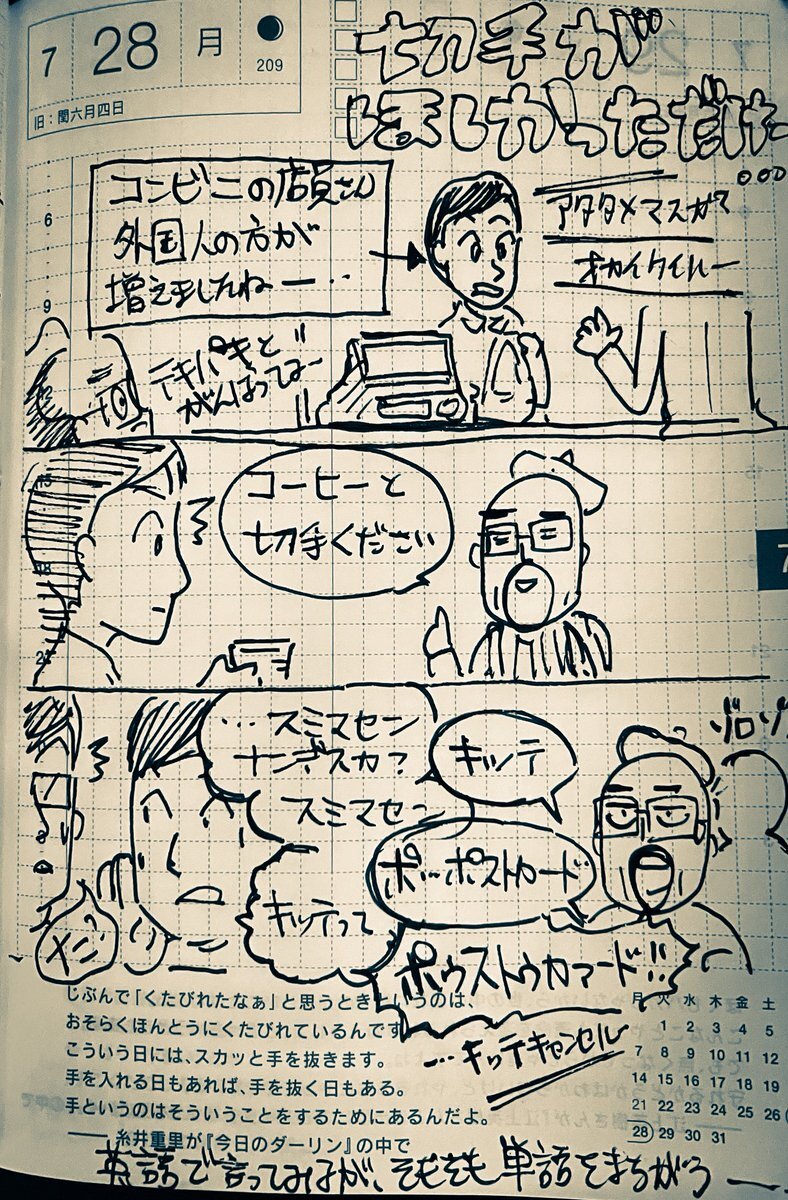 7 28 月
209
旧：閏六月四日
切手が
ほしかっただけ…
コンビニの店員さん
外国人の方が
増えましたねー…
アタタメマスカ？
オカイケイハー
テキパキと
がんばってるー
6
9
コーヒーと
切手ください
…スミマセーン
ナンデスカ？
スミマセーン
キッテ
ポーポストカード
キッテって
ナニ？
ポゥストゥカァード!!
…キッテキャンセル
じぶんで「くたびれたなぁ」と思うときというのは、
おそらくほんとうにくたびれているんです
こういう日には、スカッと手を抜きます。
手を入れる日もあれば、手を抜く日もある。
手というのはそういうことをするためにあるんだよ。
――糸井重里が『今日のダーリン』の中で
月 火 水 木 金 土
1 2 3 4 5
7 8 9 10 11 12
14 15 16 17 18 19
21 22 23 24 25 26
28 29 30 31
7
英語で言ってみるが、そもそも単語をまちがう―